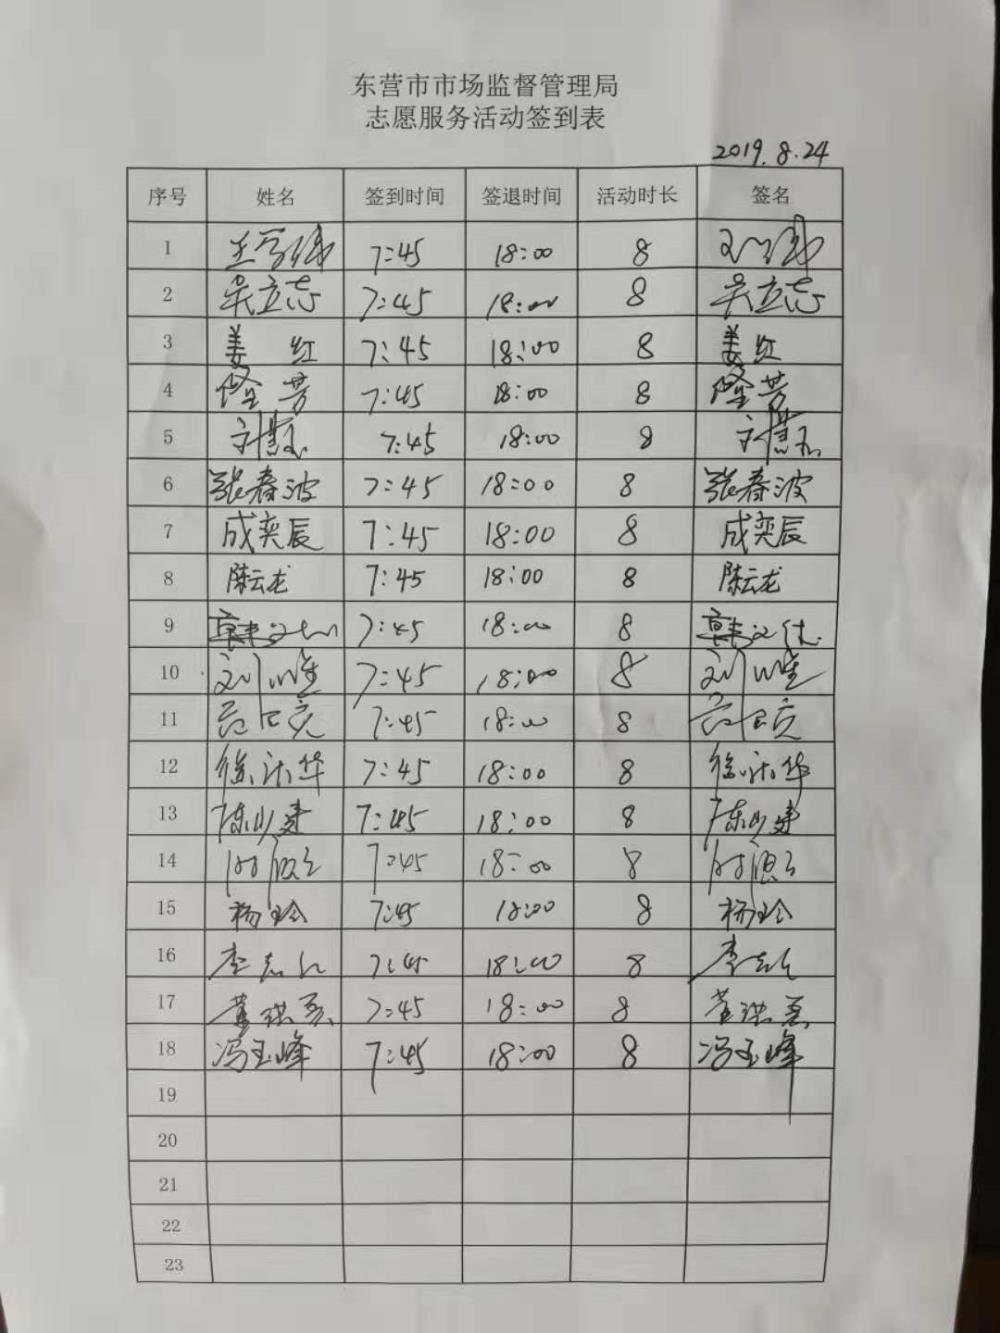 东营市市场监督管理局
志愿服务活动签到表
2019.8.24
序号 姓名 签到时间 签退时间 活动时长 签名
1 7:45 18:00 8
2 吴立志 7:45 18:00 8 吴立志
3 姜红 7:45 18:00 8 姜红
4 隆芳 7:45 18:00 8 隆芳
5 7:45 18:00 8
6 张春波 7:45 18:00 8 张春波
7 成奕辰 7:45 18:00 8 成奕辰
8 陈云龙 7:45 18:00 8 陈云龙
9 韩文 7:45 18:00 8 韩文
10 刘 7:45 18:00 8 刘
11 7:45 18:00 8
12 徐 华 7:45 18:00 8 徐 华
13 陈少建 7:45 18:00 8 陈少建
14 7:45 18:00 8
15 杨玲 7:45 18:00 8 杨玲
16 李 7:45 18:00 8 李
17 董 7:45 18:00 8 董
18 冯玉峰 7:45 18:00 8 冯玉峰
19
20
21
22
23